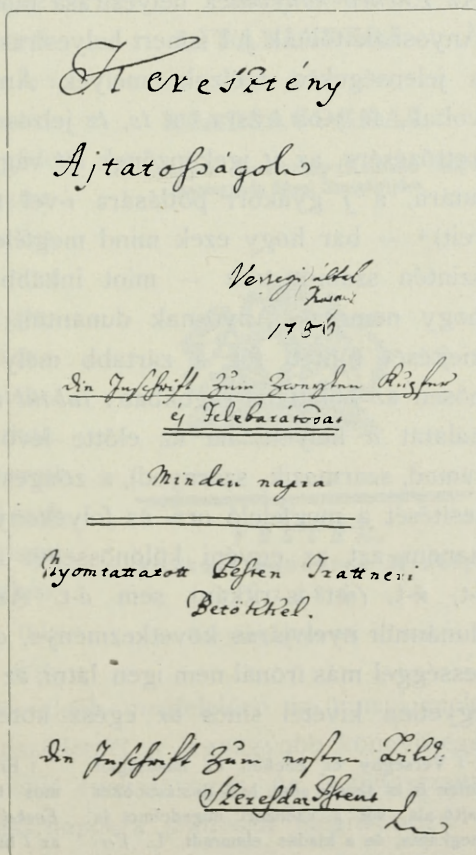 Keresztény
Ajtatosságok
Versegi által
1796
die Inschrift zum zweyten Kupfer
éj Felebarátodat
Minden napra
Nyomtattatott Pesten Trattneri
Betökkel.
die Inschrift zum ersten Bild:
Szeresd az Istent